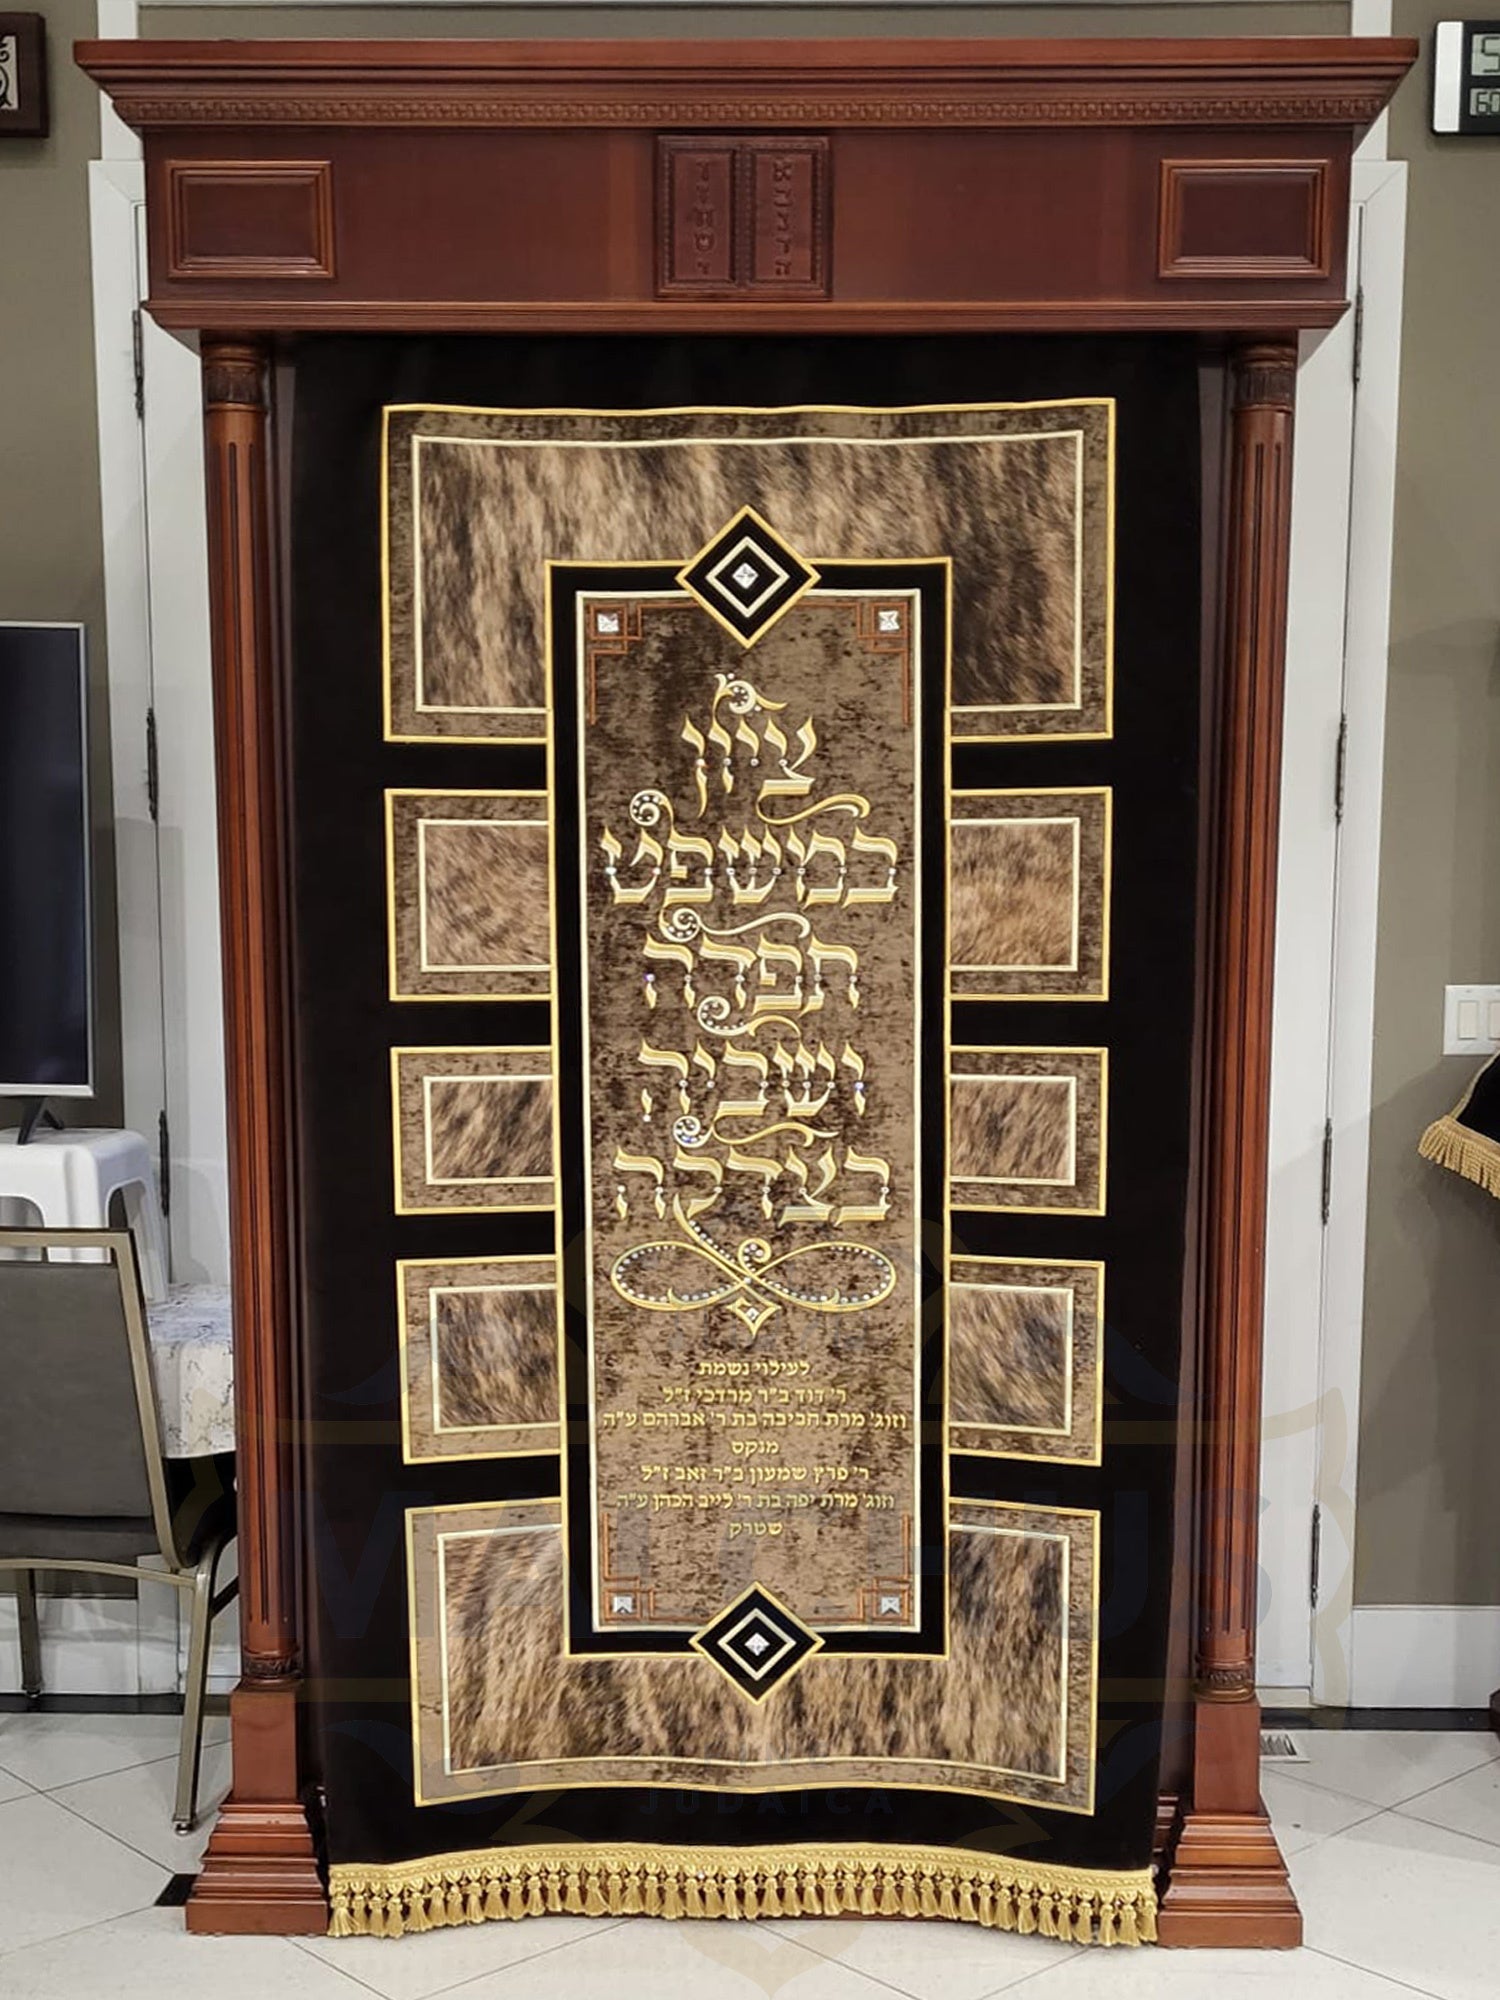 א ו
ב ז
ג ח
ד ט
ה י
ציון
במשפט
תפדה
ושביה
בצדקה
לעילוי נשמת
ר' דוד ב"ר מרדכי ז"ל
וזוג' מרת חביבה בת ר' אברהם ע"ה
מנקס
ר' פרץ שמעון ב"ר זאב ז"ל
וזוג' מרת יפה בת ר' לייב הכהן ע"ה
שטרק
JUDAICA
60